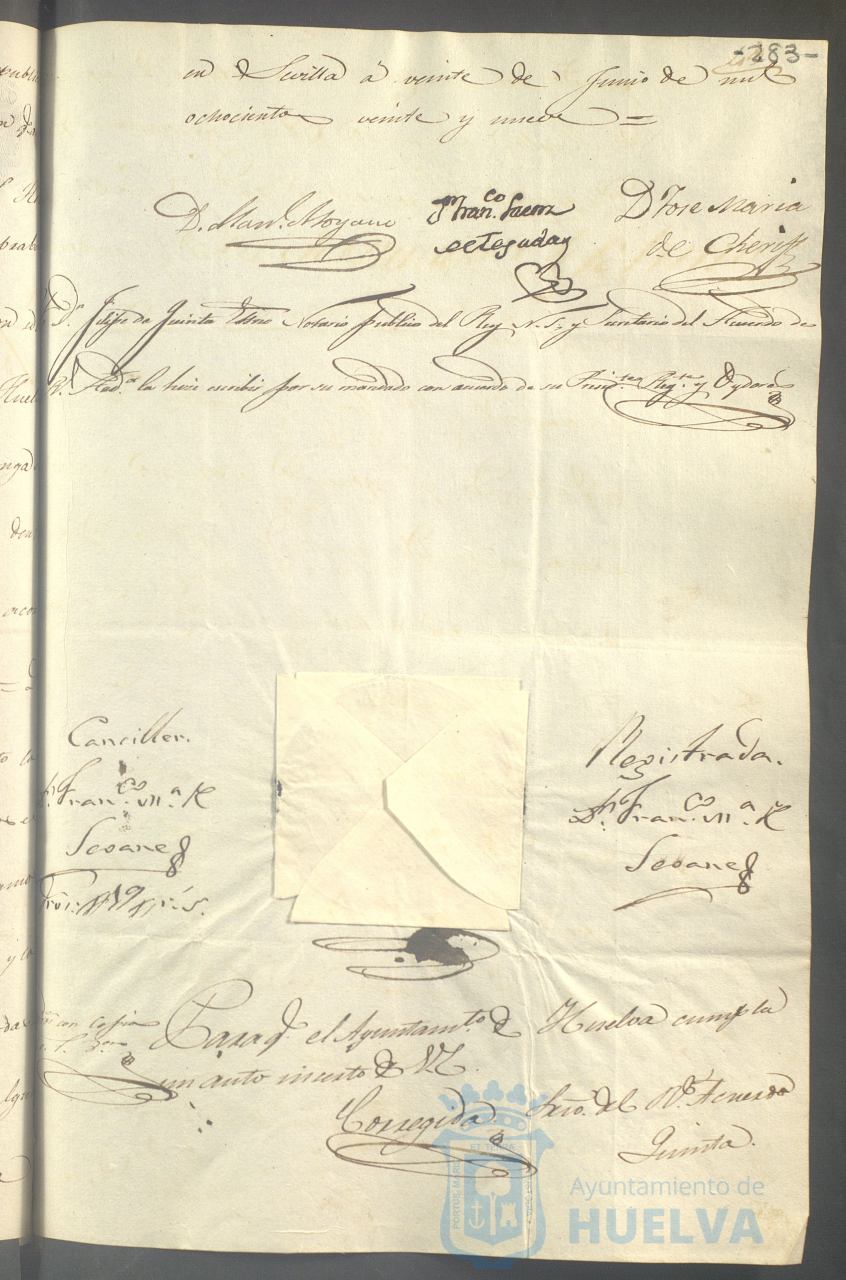 -283-
en Sevilla á veinte de Junio de mil
ochocientos veinte y nueve =
D. Man.l Moyano
Fran.co Saenz
de Tejada
D. Jose Maria
de Cheriff
Felipe de Quinta Esno Notario publico del Rey N. S. y Secretario del Acuerdo de
R.l Aud.a la hice escribir por su mandado con acuerdo de su Regente y Oydores
Canciller.
Fran.co M.a
Seoane
Registrada.
D.n Fran.co M.a
Seoane
con copia
Para q.e el Ayuntam.to de Huelva cumpla
un auto inserto de VE.
Corregida.
Srio. del R.l Acuerdo
Quinta.
PORTUS MARIS
ET TERRAE
Ayuntamiento de
HUELVA